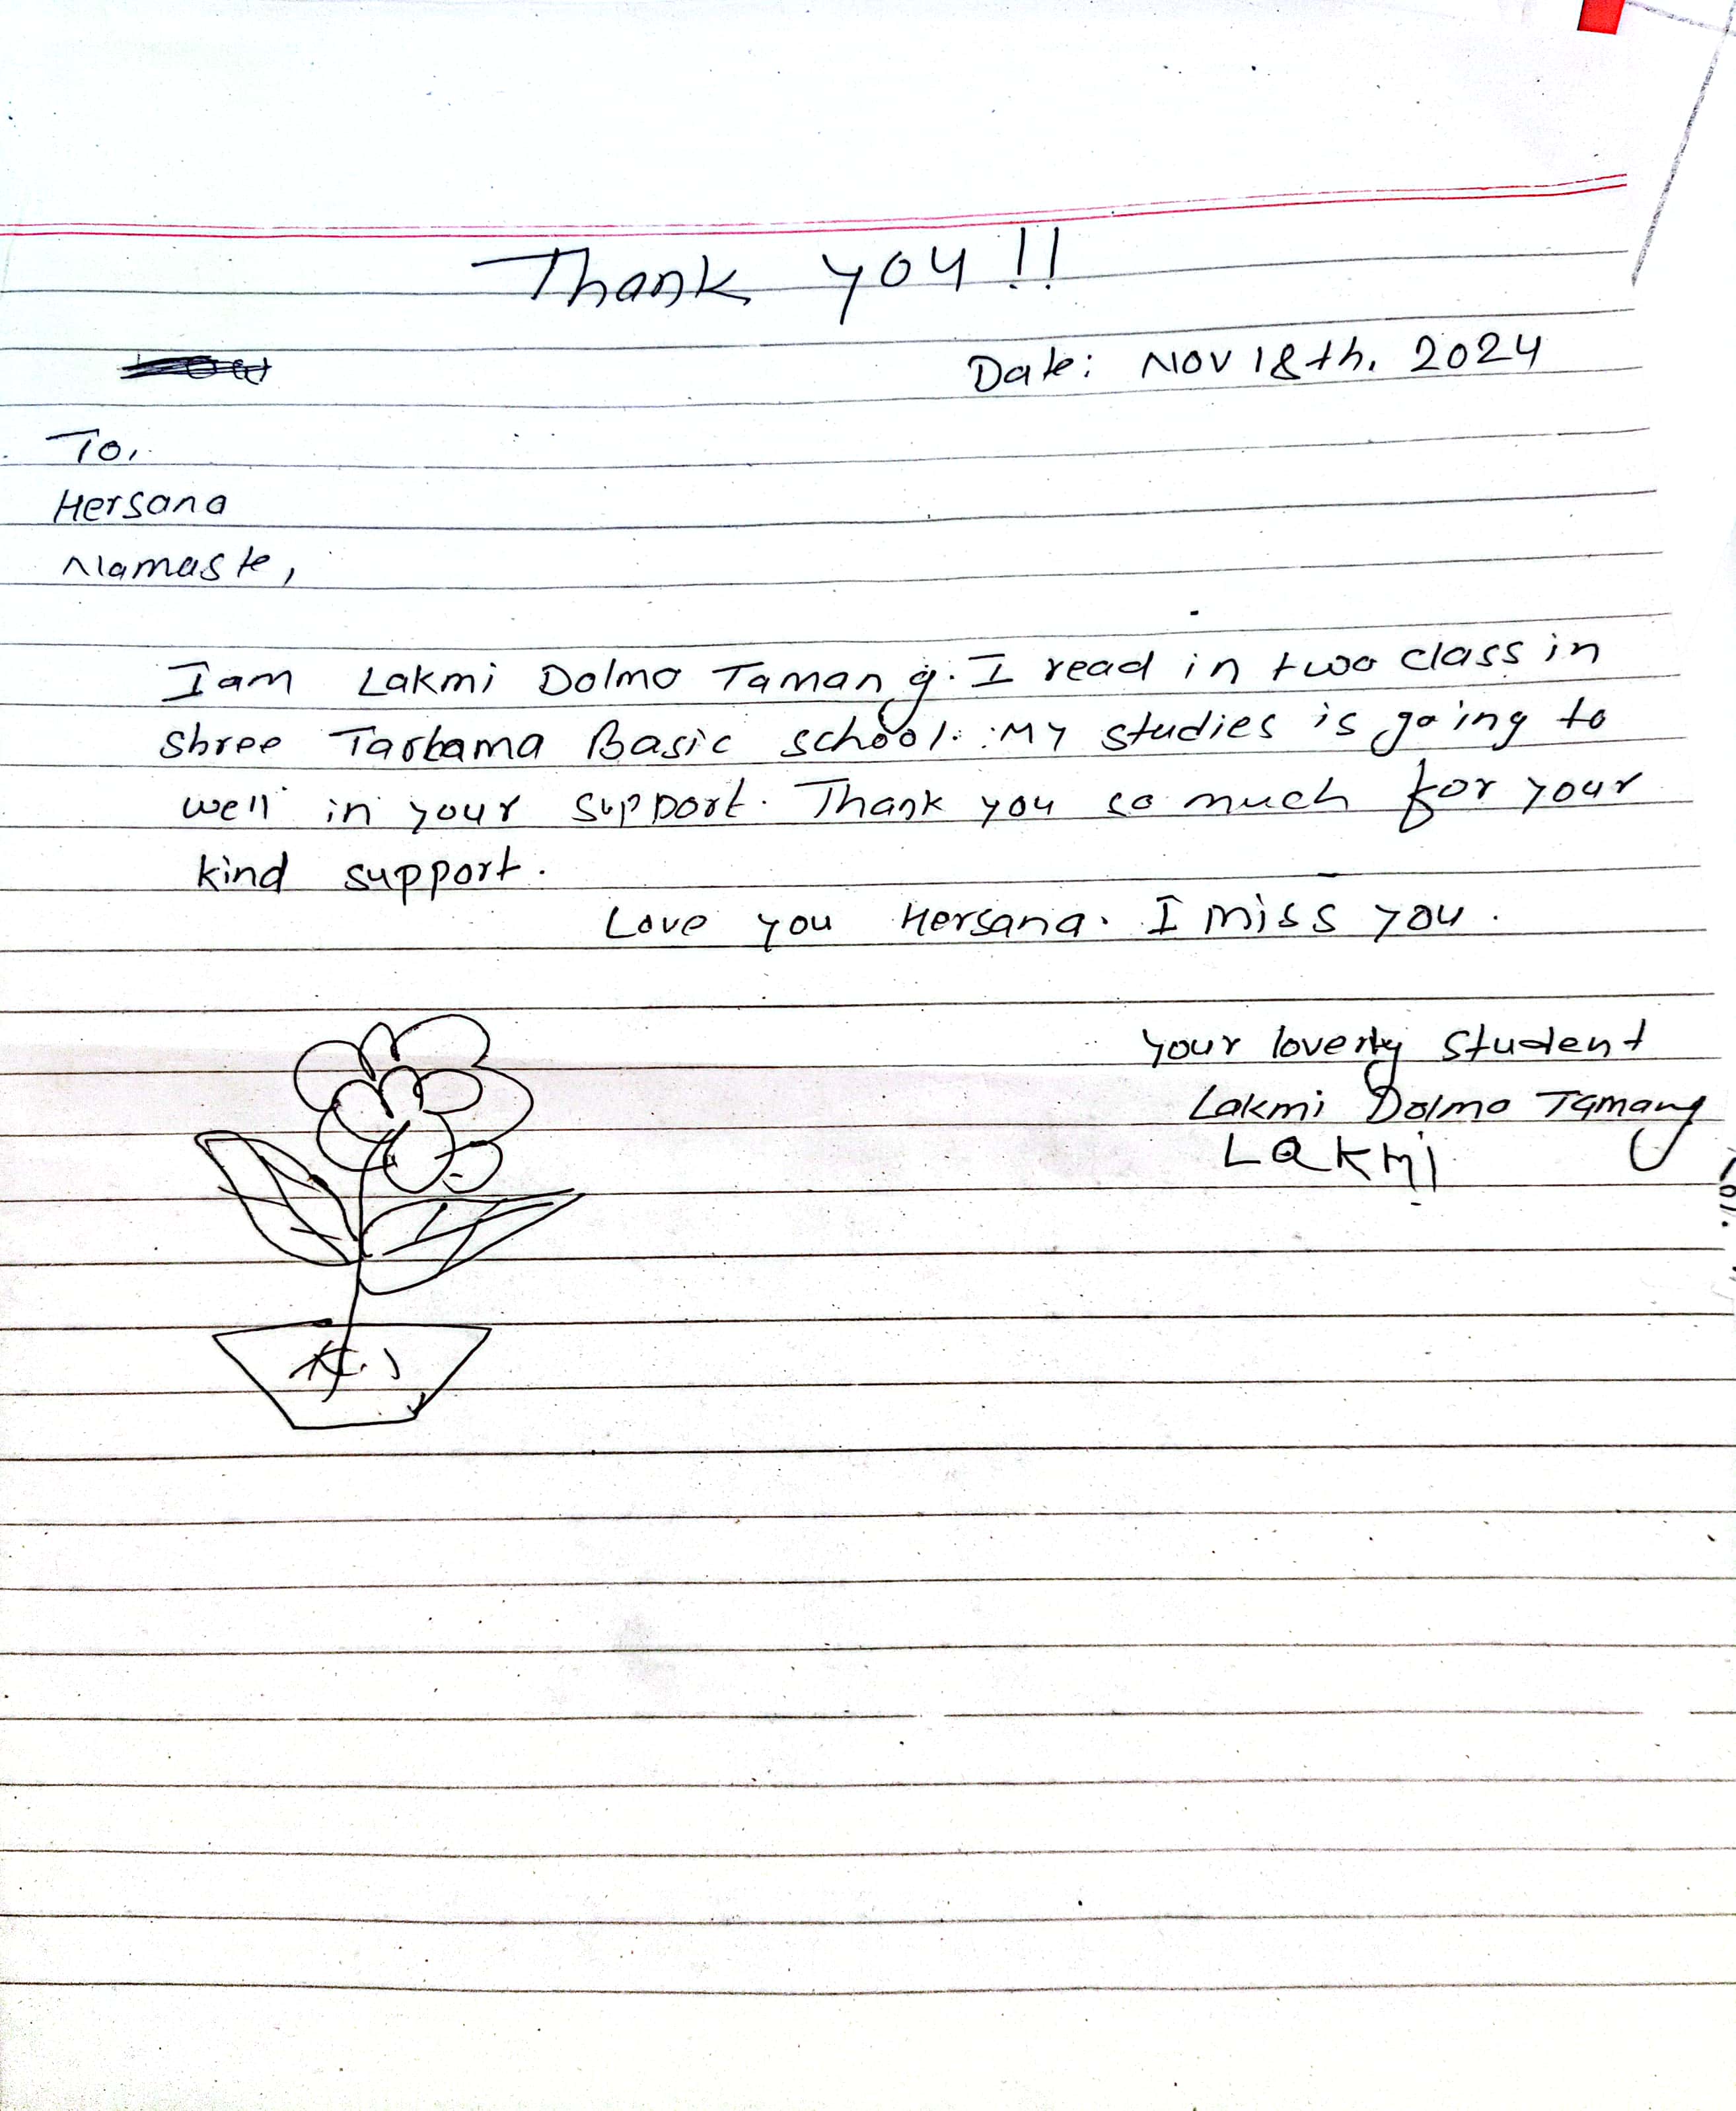 Thank you!!
Date: Nov 18th, 2024
To,
Hersana
Namaste,
I am Lakmi Dolmo Tamang. I read in two class in
shree Tarkama Basic school. My studies is going to
well in your support. Thank you so much for your
kind support.
Love you Hersana. I miss you.
your loverly student
Lakmi Dolmo Tamang
LaKMi